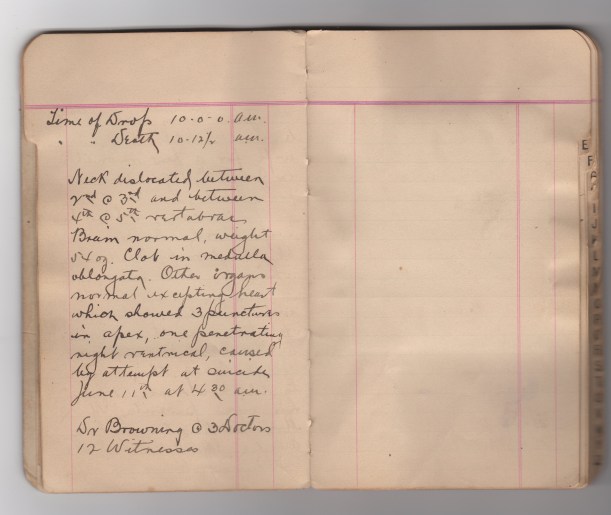 Time of Drop 10-0-0 a.m.
" " Death 10-12½ a.m.
Neck dislocated between
2nd @ 3rd and between
4th @ 5th vertabrae,
Brain normal, weight
54 oz. Clot in medulla
oblongata. Other organs
normal excepting heart
which showed 3 punctures
in apex, one penetrating
right ventrical, caused
by attempt at suicide
June 11th at 4 30 a.m.
Dr Browning @ 3 Doctors
12 Witnesses
E
F